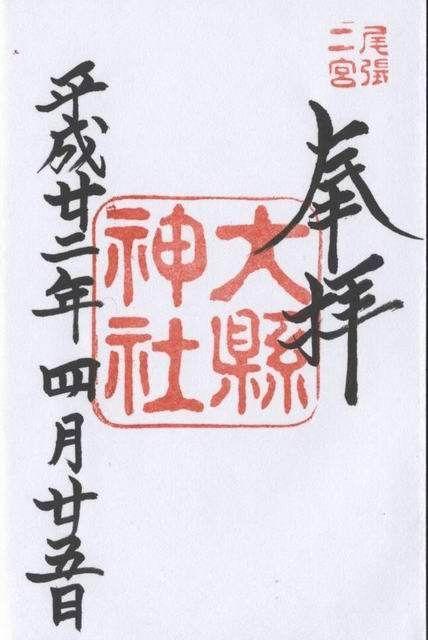 尾張
二宮
奉拝
大縣
神社
平成廿二年四月廿五日